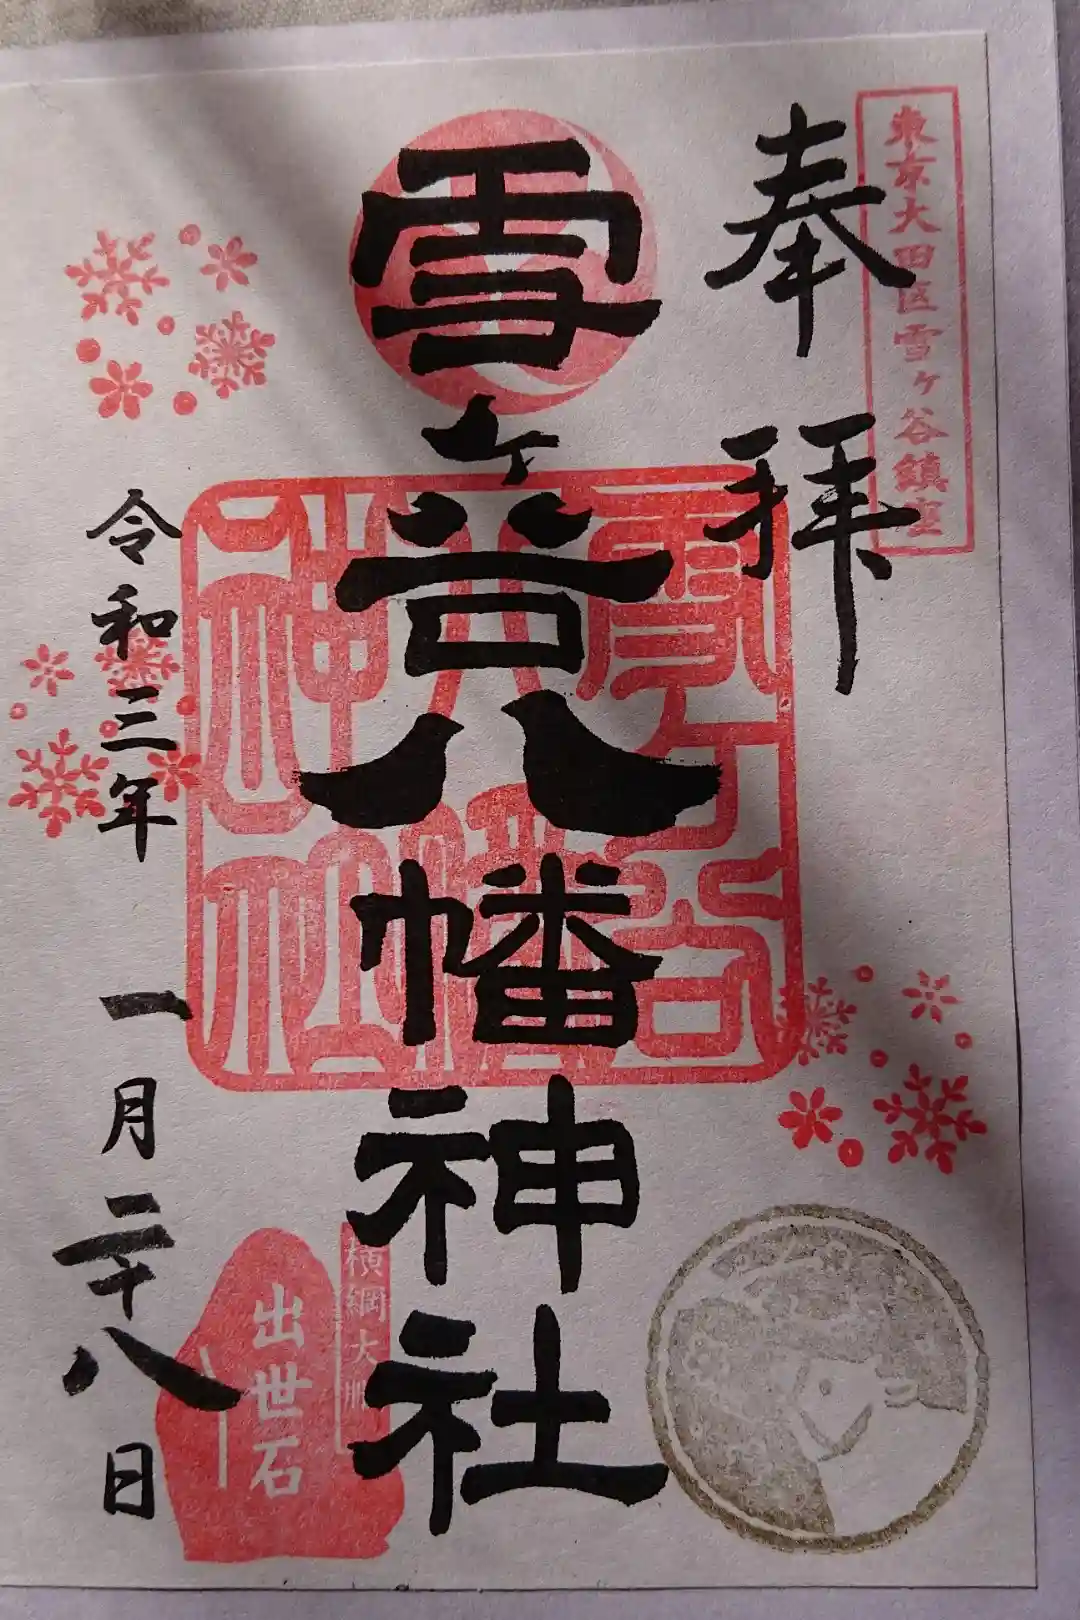 東京大田区雪ヶ谷鎮座
奉拝
雪ヶ谷八幡神社
雪ヶ谷
八幡
神社
横綱大鵬
出世石
令和三年
一月二十八日